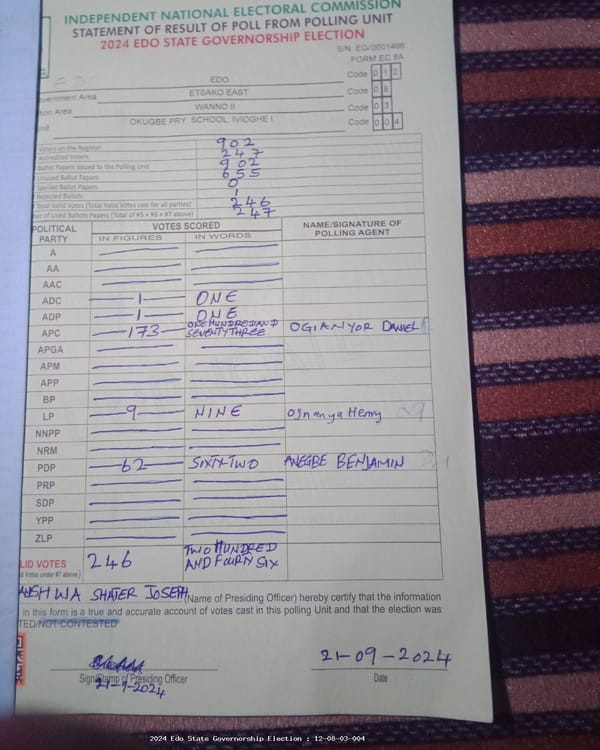 INDEPENDENT NATIONAL ELECTORAL COMMISSION
STATEMENT OF RESULT OF POLL FROM POLLING UNIT
2024 EDO STATE GOVERNORSHIP ELECTION
S/N: EG/0001466
FORM EC 8A
EDO Code 0 1 2
vernment Area ETSAKO EAST Code 0 8
on Area WANNO II Code 0 3
nit OKUGBE PRY. SCHOOL, IVIOGHE I Code 0 0 4
Voters on the Register 902
Accredited Voters 247
Ballot Papers Issued to the Polling Unit 902
Unused Ballot Papers 655
Spoiled Ballot Papers 0
Rejected Ballots 1
Total Valid Votes (Total Valid Votes cast for all parties) 246
ber of Used Ballots Papers (Total of #5 + #6 + #7 above) 247
POLITICAL PARTY VOTES SCORED NAME/SIGNATURE OF POLLING AGENT
IN FIGURES IN WORDS
A
AA
AAC
ADC 1 ONE
ADP 1 ONE
APC 173 ONE HUNDRED AND SEVENTY THREE OGIANYOR DANIEL
APGA
APM
APP
BP
LP 9 NINE Henry
NNPP
NRM
PDP 62 SIXTY-TWO ANEGBE BENJAMIN
PRP
SDP
YPP
ZLP
LID VOTES 246 TWO HUNDRED AND FOURTY SIX
d Votes under #7 above)
SHATER JOSEPH (Name of Presiding Officer) hereby certify that the information
in this form is a true and accurate account of votes cast in this polling Unit and that the election was
TED/NOT CONTESTED
21-09-2024
Sign/Stamp of Presiding Officer Date
21-9-2024
2024 Edo State Governorship Election : 12-08-03-004